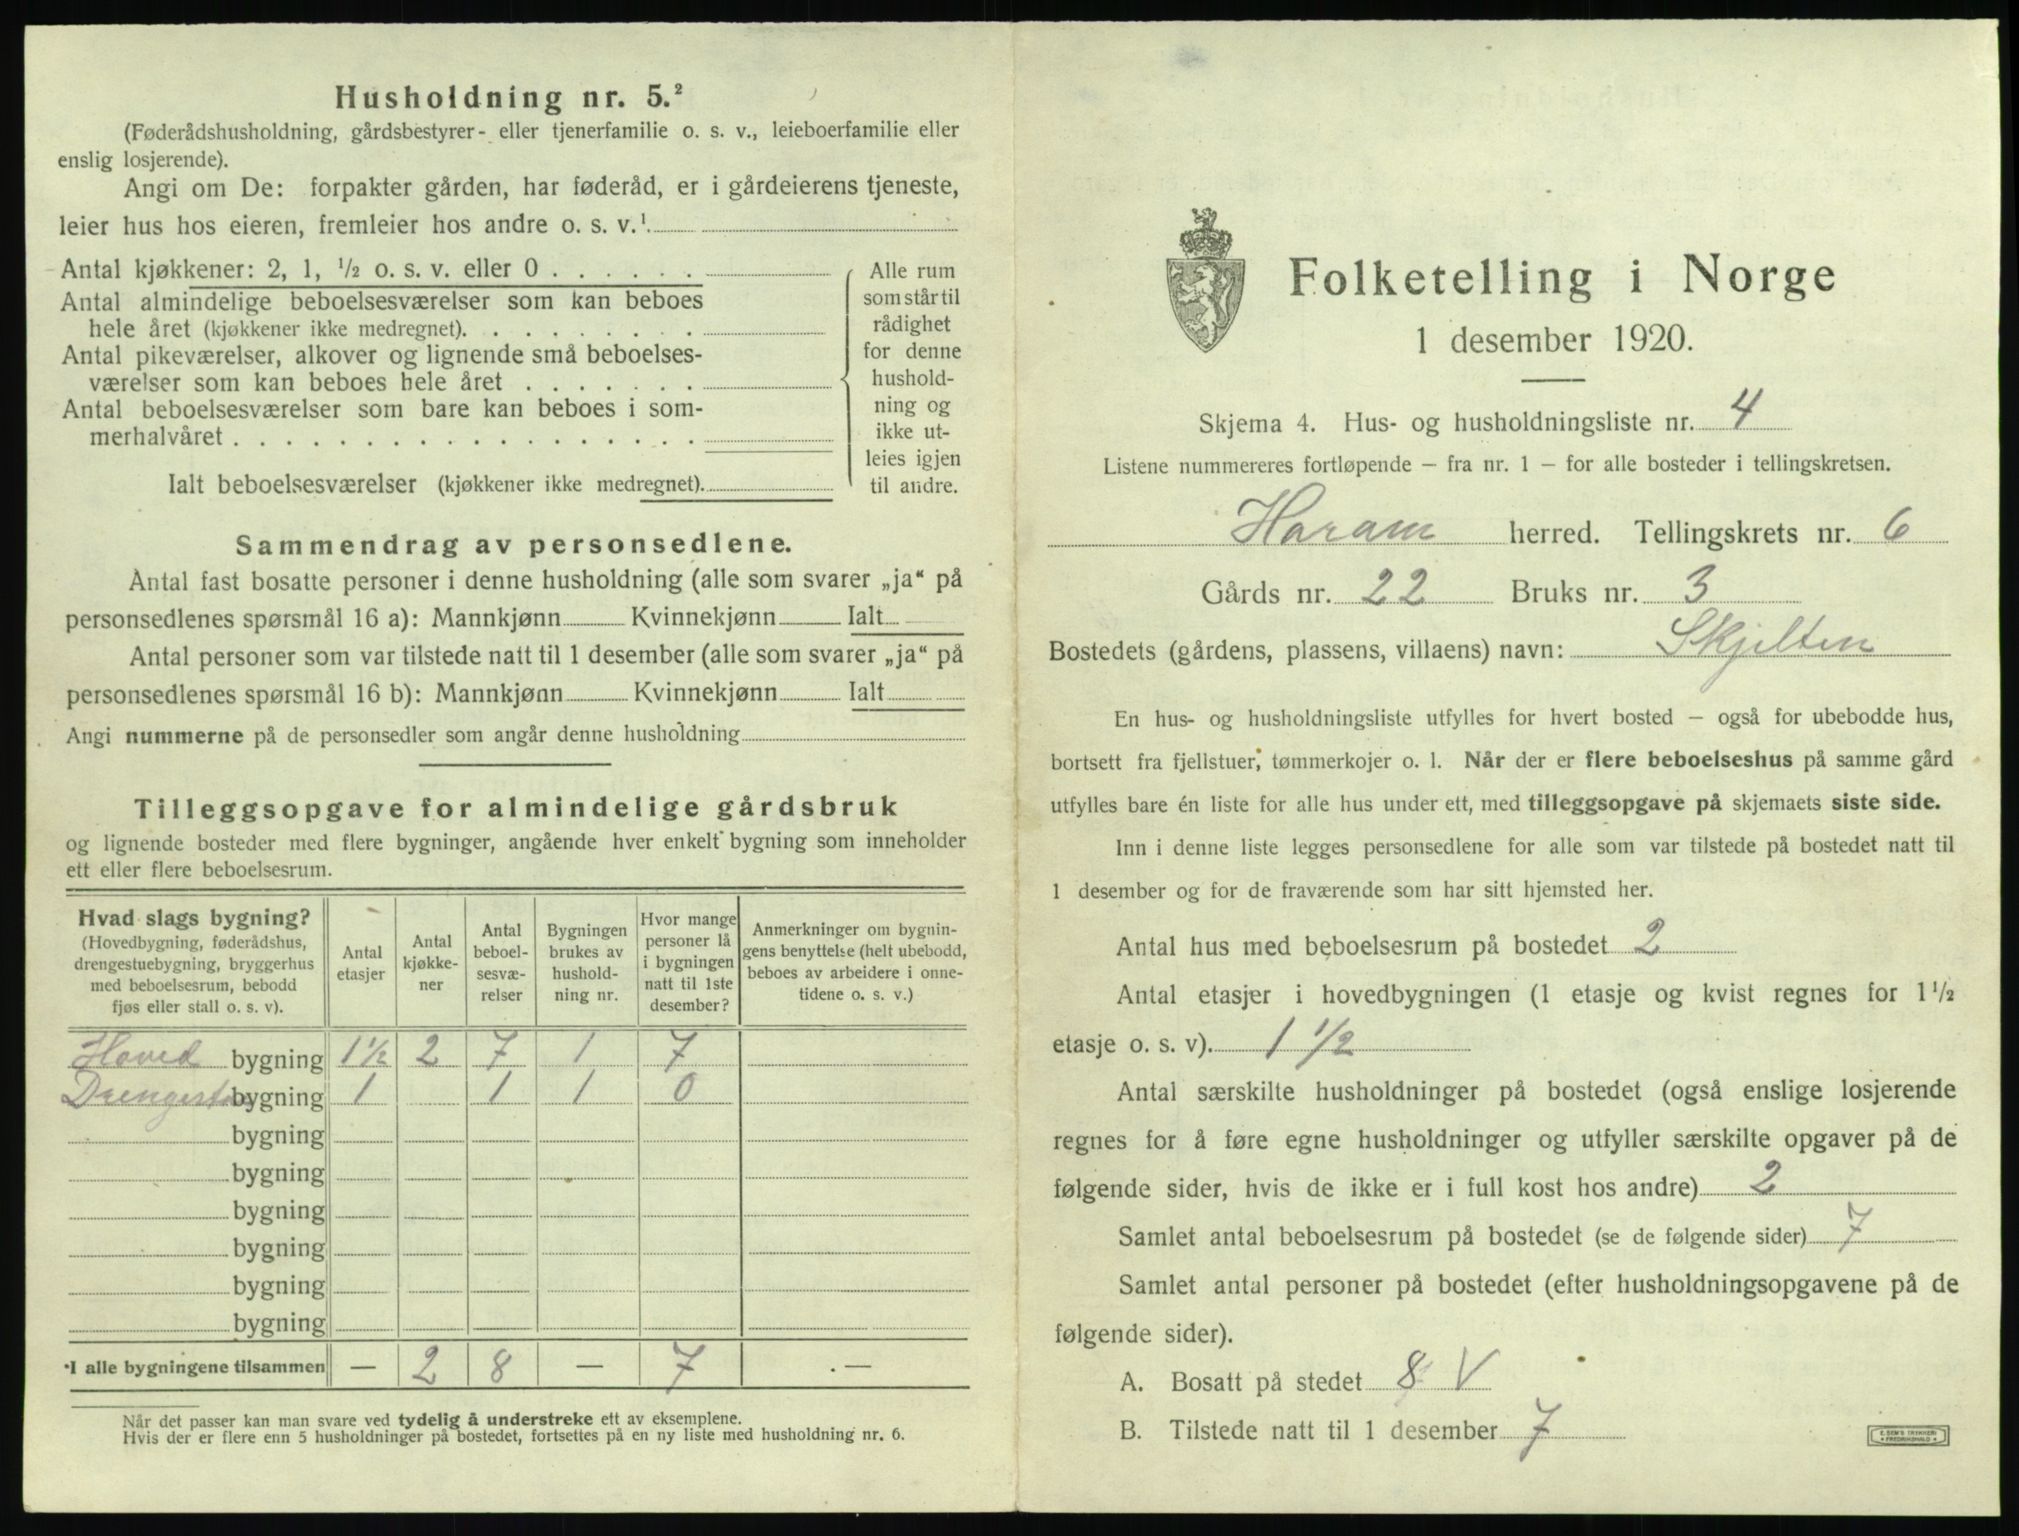 Husholdning nr. 5.²
(Føderådshusholdning, gårdsbestyrer- eller tjenerfamilie o. s. v., leieboerfamilie eller
enslig losjerende).
Angi om De: forpakter gården, har føderåd, er i gårdeierens tjeneste,
leier hus hos eieren, fremleier hos andre o. s. v.¹
Antal kjøkkener: 2, 1, ½ o. s. v. eller 0 . . . . . .
Antal almindelige beboelsesværelser som kan beboes
hele året (kjøkkener ikke medregnet). . . . . . . . .
Antal pikeværelser, alkover og lignende små beboelses-
værelser som kan beboes hele året . . . . . . .
Antal beboelsesværelser som bare kan beboes i som-
merhalvåret . . . . . . . . . . . . . . . . . .
Ialt beboelsesværelser (kjøkkener ikke medregnet).
Alle rum
som står til
rådighet
for denne
hushold-
ning og
ikke ut-
leies igjen
til andre.
Sammendrag av personsedlene.
Antal fast bosatte personer i denne husholdning (alle som svarer „ja“ på
personsedlenes spørsmål 16 a): Mannkjønn Kvinnekjønn Ialt
Antal personer som var tilstede natt til 1 desember (alle som svarer „ja“ på
personsedlenes spørsmål 16 b): Mannkjønn Kvinnekjønn Ialt
Angi nummerne på de personsedler som angår denne husholdning
Tilleggsopgave for almindelige gårdsbruk
og lignende bosteder med flere bygninger, angående hver enkelt bygning som inneholder
ett eller flere beboelsesrum.
Hvad slags bygning?
(Hovedbygning, føderådshus,
drengestuebygning, bryggerhus
med beboelsesrum, bebodd
fjøs eller stall o. s. v).
Antal
etasjer
Antal
kjøkke-
ner
Antal
beboel-
sesvæ-
relser
Bygningen
brukes av
hushold-
ning nr.
Hvor mange
personer lå
i bygningen
natt til 1ste
desember?
Anmerkninger om bygnin-
gens benyttelse (helt ubebodd,
beboes av arbeidere i onne-
tidene o. s. v.)
Hoved bygning 1 ½ 2 7 1 7
Drengestue bygning 1 1 1 0
bygning
bygning
bygning
bygning
bygning
bygning
I alle bygningene tilsammen — 2 8 — 7 —
Når det passer kan man svare ved tydelig å understreke ett av eksemplene.
Hvis der er flere enn 5 husholdninger på bostedet, fortsettes på en ny liste med husholdning nr. 6.
Folketelling i Norge
1 desember 1920.
Skjema 4. Hus- og husholdningsliste nr. 4
Listene nummereres fortløpende – fra nr. 1 – for alle bosteder i tellingskretsen.
Haram herred. Tellingskrets nr. 6
Gårds nr. 22 Bruks nr. 3
Bostedets (gårdens, plassens, villaens) navn: Skjelten
En hus- og husholdningsliste utfylles for hvert bosted – også for ubebodde hus,
bortsett fra fjellstuer, tømmerkojer o. l. Når der er flere beboelseshus på samme gård
utfylles bare én liste for alle hus under ett, med tilleggsopgave på skjemaets siste side.
Inn i denne liste legges personsedlene for alle som var tilstede på bostedet natt til
1 desember og for de fraværende som har sitt hjemsted her.
Antal hus med beboelsesrum på bostedet 2
Antal etasjer i hovedbygningen (1 etasje og kvist regnes for 1 ½
etasje o. s. v). 1 ½
Antal særskilte husholdninger på bostedet (også enslige losjerende
regnes for å føre egne husholdninger og utfyller særskilte opgaver på de
følgende sider, hvis de ikke er i full kost hos andre) 2
Samlet antal beboelsesrum på bostedet (se de følgende sider) 7
Samlet antal personer på bostedet (efter husholdningsopgavene på de
følgende sider).
A. Bosatt på stedet 8 V
B. Tilstede natt til 1 desember 7
E. SEM'S TRYKKERI
FREDRIKSHALD